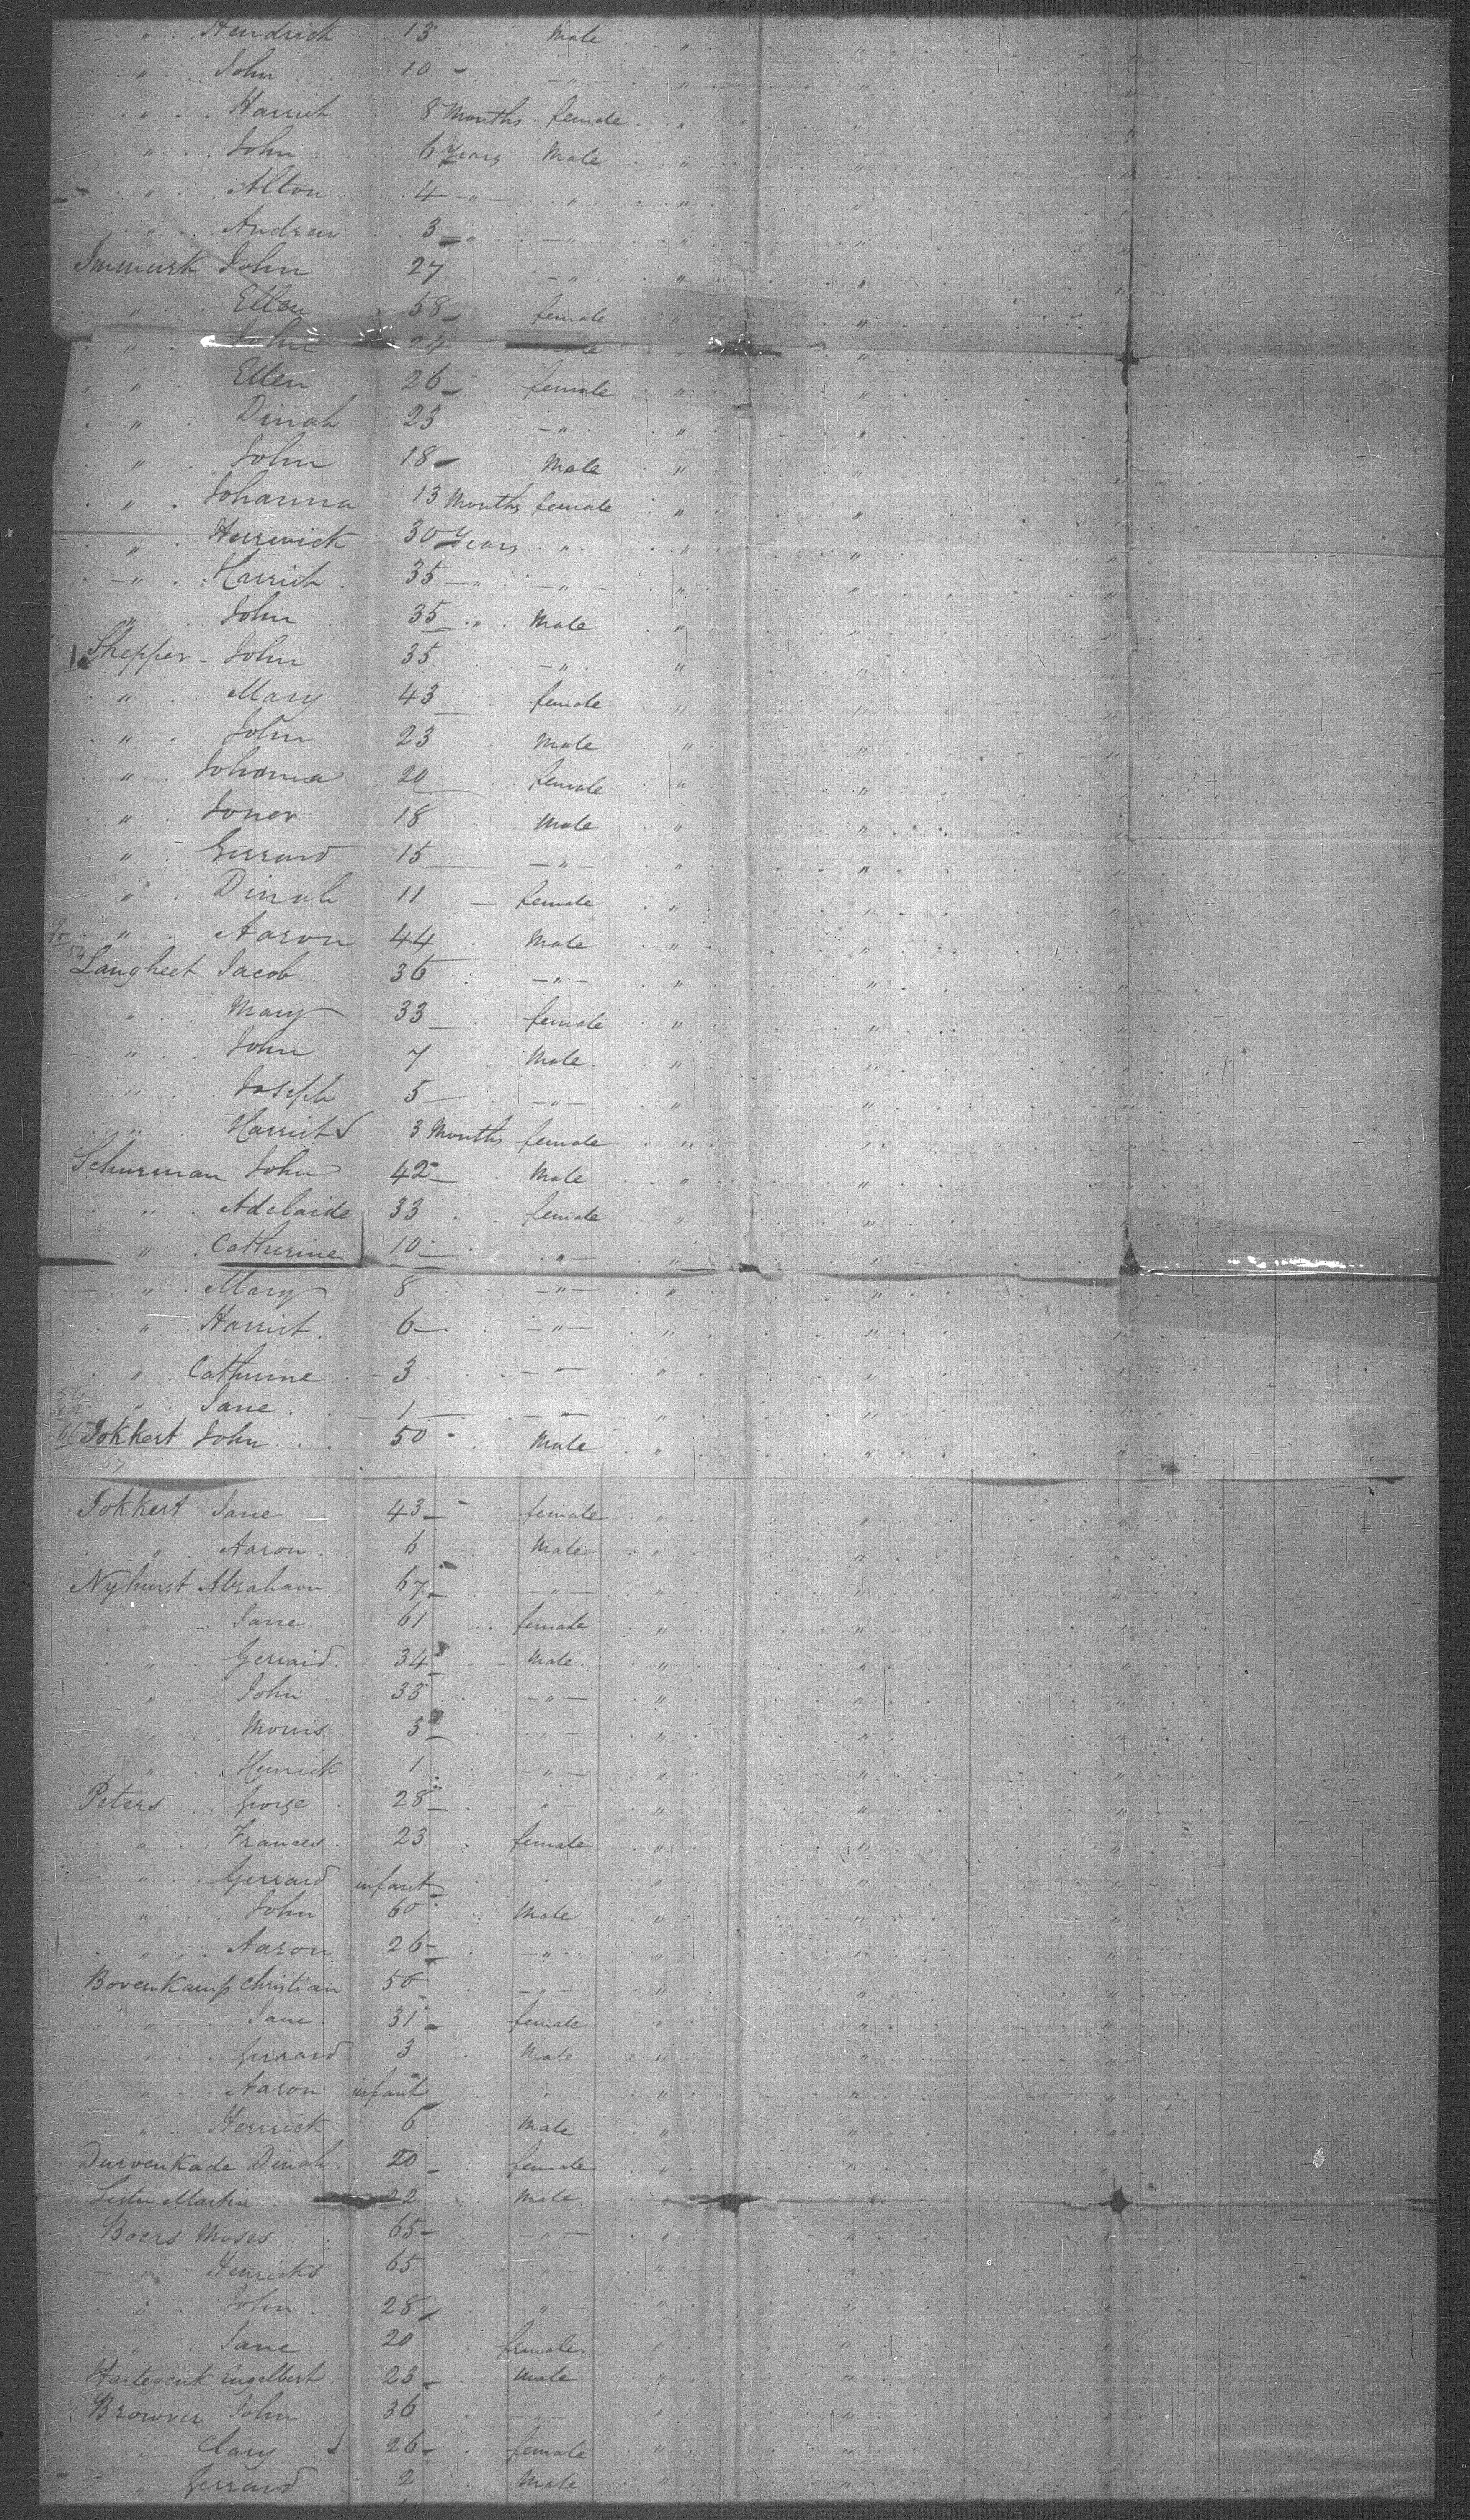 " Hendrick 13 Male " " "
" John 10 - " " " "
" Harriet 8 Months female " " "
" John 6 Years Male " " "
" Alton 4 " " " " "
" Andrew 3 " " " " "
John 27 " " " "
" Ellen 58 female " " "
" John 24 male " " "
" " Ellen 26 female " " "
" Dinah 23 " " " "
" John 18 Male " " "
" Johanna 13 Months female " " "
" Herrwick 30 Years " " " "
" Harriet 35 " " " " "
" John 35 " Male " " "
Shepper John 35 " " " "
" Mary 43 female " " "
" John 23 Male " " "
" Johanna 20 female " " "
" Joner 18 Male " " "
" Gerrard 15 " " " "
" Dinah 11 female " " "
" Aaron 44 Male " " "
54
Langheet Jacob 36 " " " "
" Mary 33 female " " "
" John 7 Male " " "
" Joseph 5 " " " "
" Harriet 3 Months female " " "
Schurman John 42 Male " " "
" Adelaide 33 female " " "
" Catherine 10 " " " "
" Mary 8 " " " "
" Harriet 6 " " " "
" Catherine 3 " " " "
" Jane 1 " " " "
Tokkert John 50 Male " " "
67
Tokkert Jane 43 female " " "
" Aaron 6 Male " " "
Nyhurst Abraham 67 " " " "
" Jane 61 female " " "
" Gerraid 34 Male " " "
" John 33 " " " "
" Morris 3 " " " "
" Henrick 1 " " " "
Peters George 28 " " " "
" Frances 23 female " " "
" Gerrard infant " " "
" John 60 Male " " "
" Aaron 26 " " " "
Bovenkamp Christian 56 " " " "
" Jane 31 female " " "
" Gerrard 3 Male " " "
" Aaron infant " " "
" Herrick 6 Male " " "
Durvenkade Dinah 20 female " " "
Martin 22 Male " " "
Boers Moses 65 " " " "
" Henricks 65 " " " "
" John 28 " " " "
" Jane 20 female " " "
Hartegenk Engelbert 23 Male " " "
Browver John 36 " " " "
" Clary 26 female " " "
" Gerrard 2 Male " " "